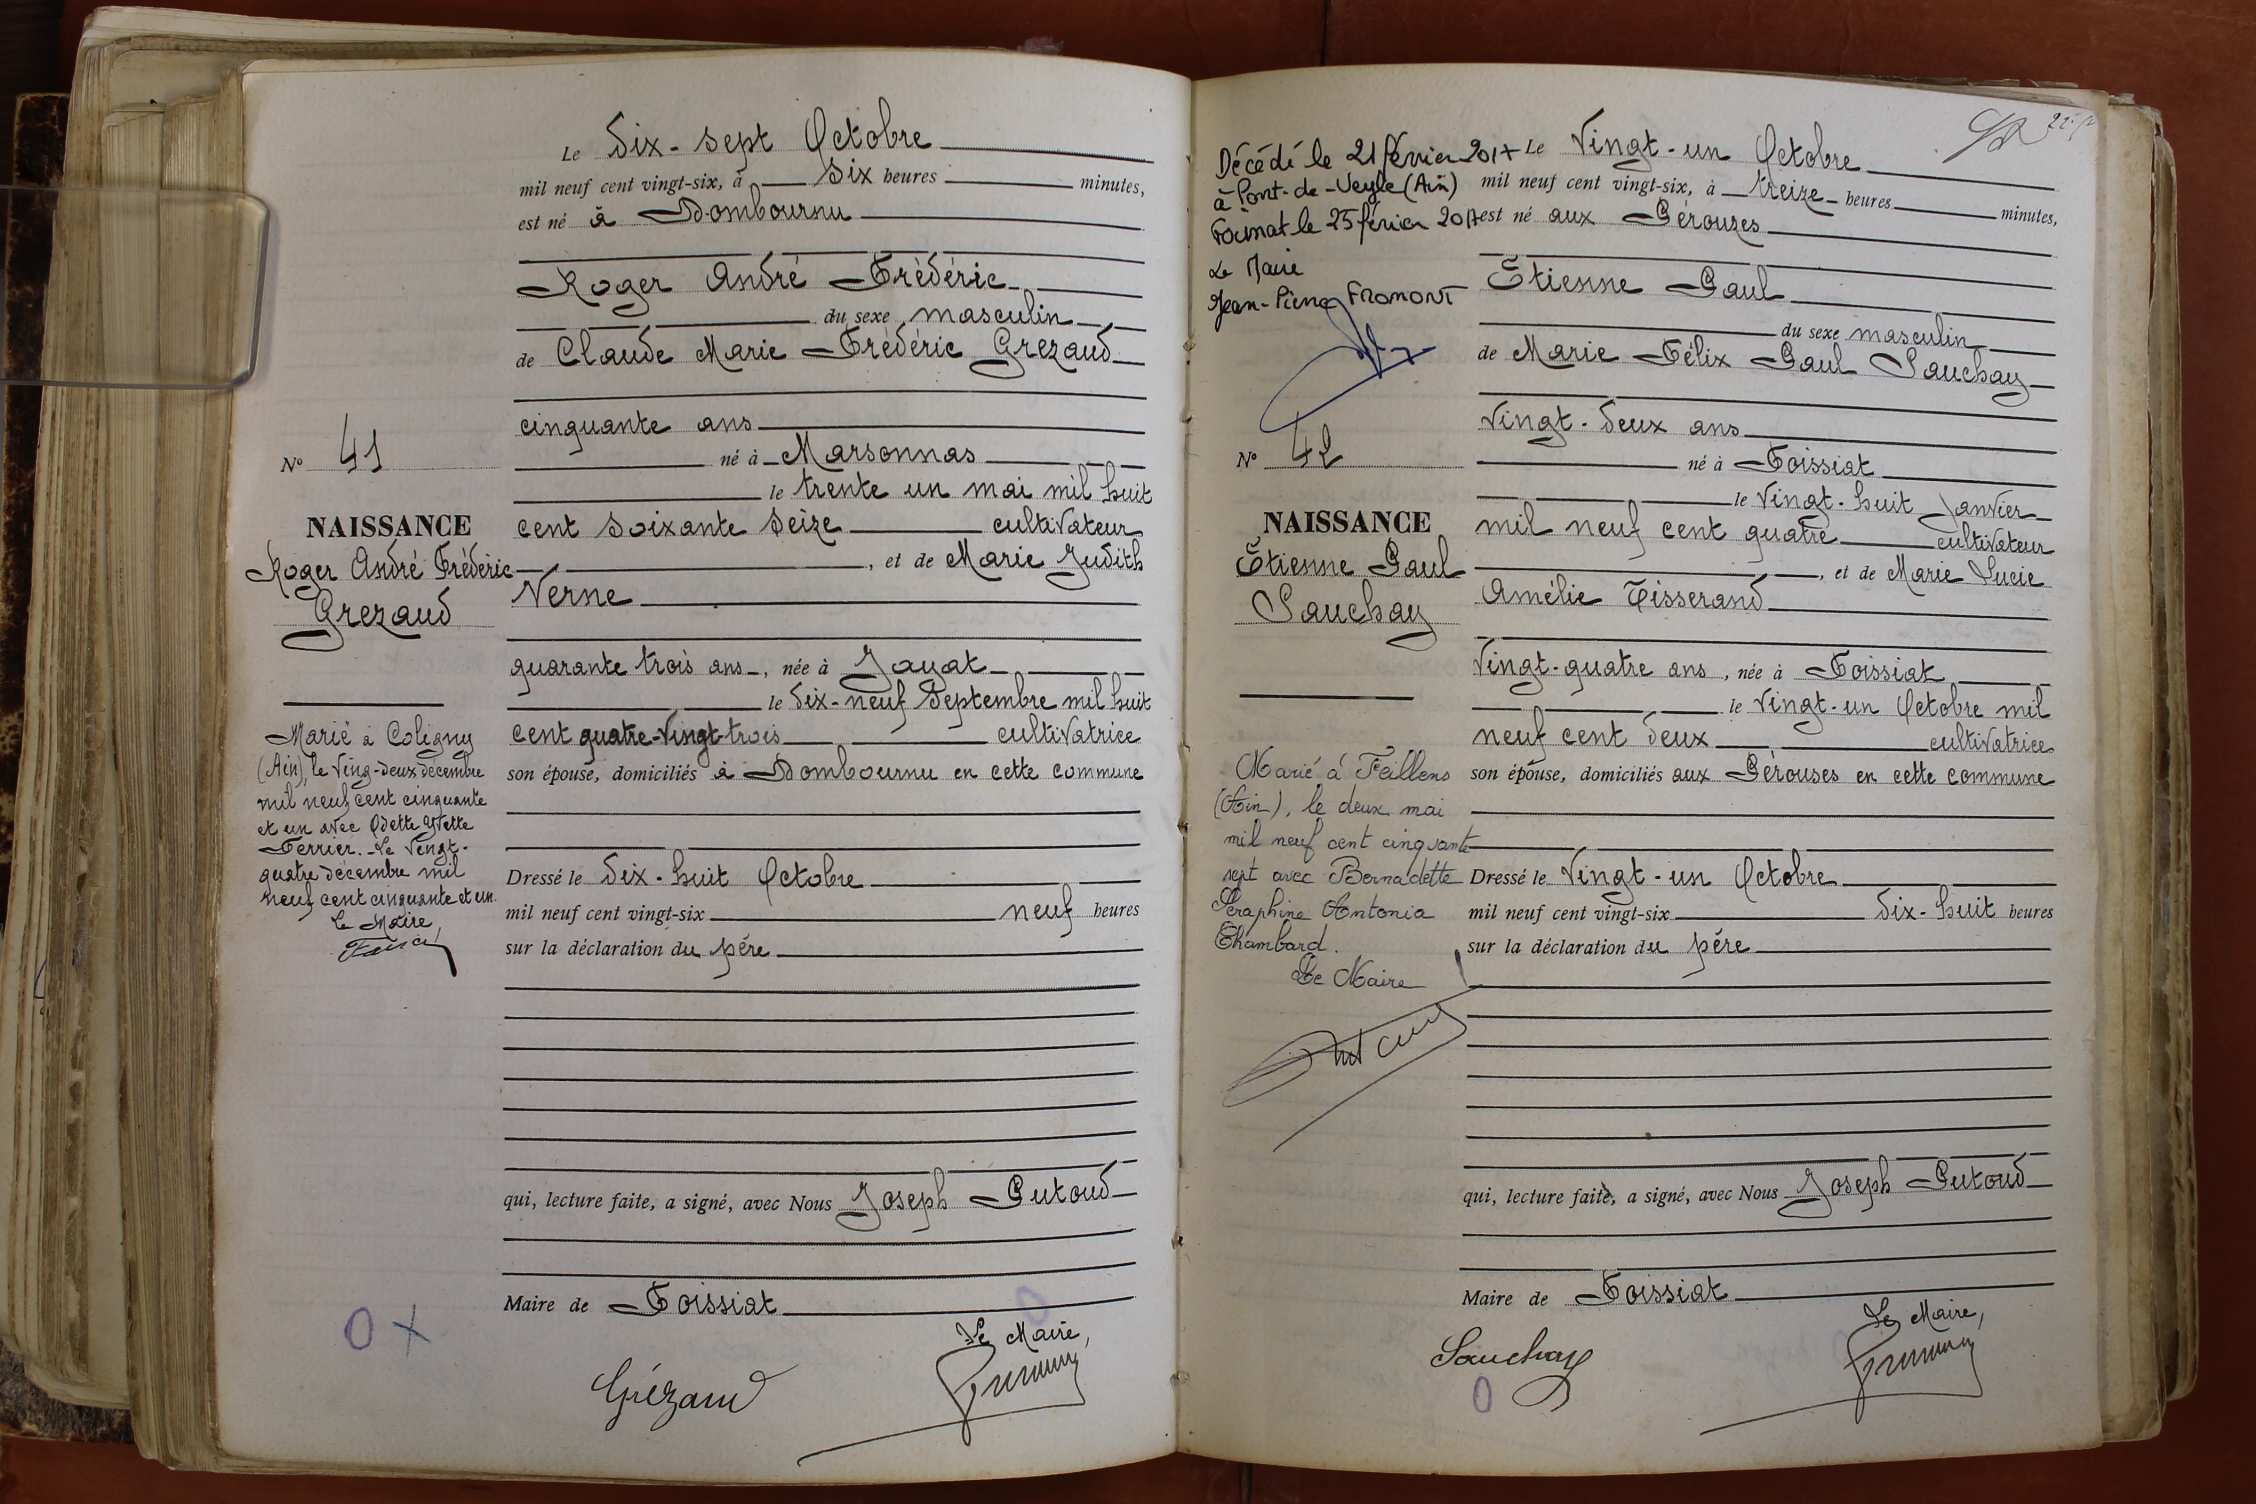 Le Dix-sept Octobre
mil neuf cent vingt-six, à six heures minutes,
est né à Dombournu
Roger André Frédéric
du sexe masculin
de Claude Marie Frédéric Grezaud
cinquante ans
né à Marsonnas
le trente un mai mil huit
cent soixante seize cultivateur
, et de Marie Judith
Verne
quarante trois ans, née à Jayat
le dix-neuf Septembre mil huit
cent quatre-vingt-trois cultivatrice
son épouse, domiciliés à Dombournu en cette commune
Dressé le Dix-huit Octobre
mil neuf cent vingt-six neuf heures
sur la déclaration du père
qui, lecture faite, a signé, avec Nous Joseph Putoud
Maire de Foissiat
Le Maire,
Grézaud
No 41
NAISSANCE
Roger André Frédéric
Grezaud
Marié à Coligny
(Ain), le ving-deux décembre
mil neuf cent cinquante
et un avec Odette Yvette
Ferrier. Le vingt-
quatre décembre mil
neuf cent cinquante et un.
Le Maire,
O X
Décédé le 21 février 2017
à Pont-de-Veyle (Ain)
Foissiat le 25 février 2017
Le Maire
Jean-Pierre FROMONT
No 42
NAISSANCE
Etienne Paul
Sauchay
Marié à Feillens
(Ain), le deux mai
mil neuf cent cinquante
sept avec Bernadette
Séraphine Antonia
Chambard.
Le Maire
Le Vingt-un Octobre
mil neuf cent vingt-six, à treize heures minutes,
est né aux Pérouzes
Etienne Paul
du sexe masculin
de Marie Félix Paul Sauchay
vingt-deux ans
né à Foissiat
le vingt-huit Janvier
mil neuf cent quatre cultivateur
, et de Marie Lucie
Amélie Tisserand
vingt-quatre ans, née à Foissiat
le vingt-un Octobre mil
neuf cent deux cultivatrice
son épouse, domiciliés aux Pérouses en cette commune
Dressé le Vingt-un Octobre
mil neuf cent vingt-six dix-huit heures
sur la déclaration du père
qui, lecture faite, a signé, avec Nous Joseph Putoud
Maire de Foissiat
Le Maire,
Sauchay
O